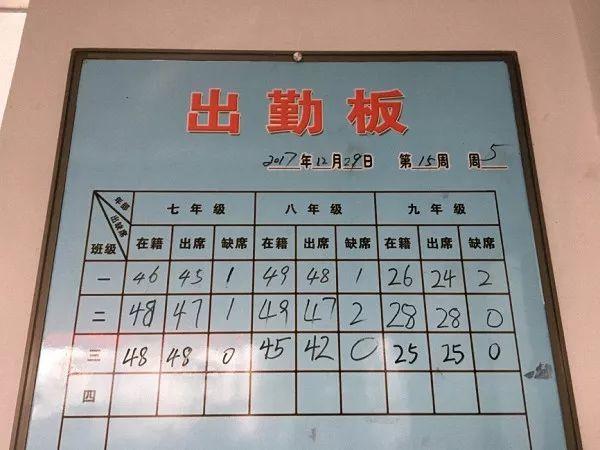 出勤板
2017年12月29日 第15周 周5
年级 七年级 八年级 九年级
出缺席
班级 在籍 出席 缺席 在籍 出席 缺席 在籍 出席 缺席
一 46 45 1 49 48 1 26 24 2
二 48 47 1 49 47 2 28 28 0
三 48 48 0 45 42 0 25 25 0
四